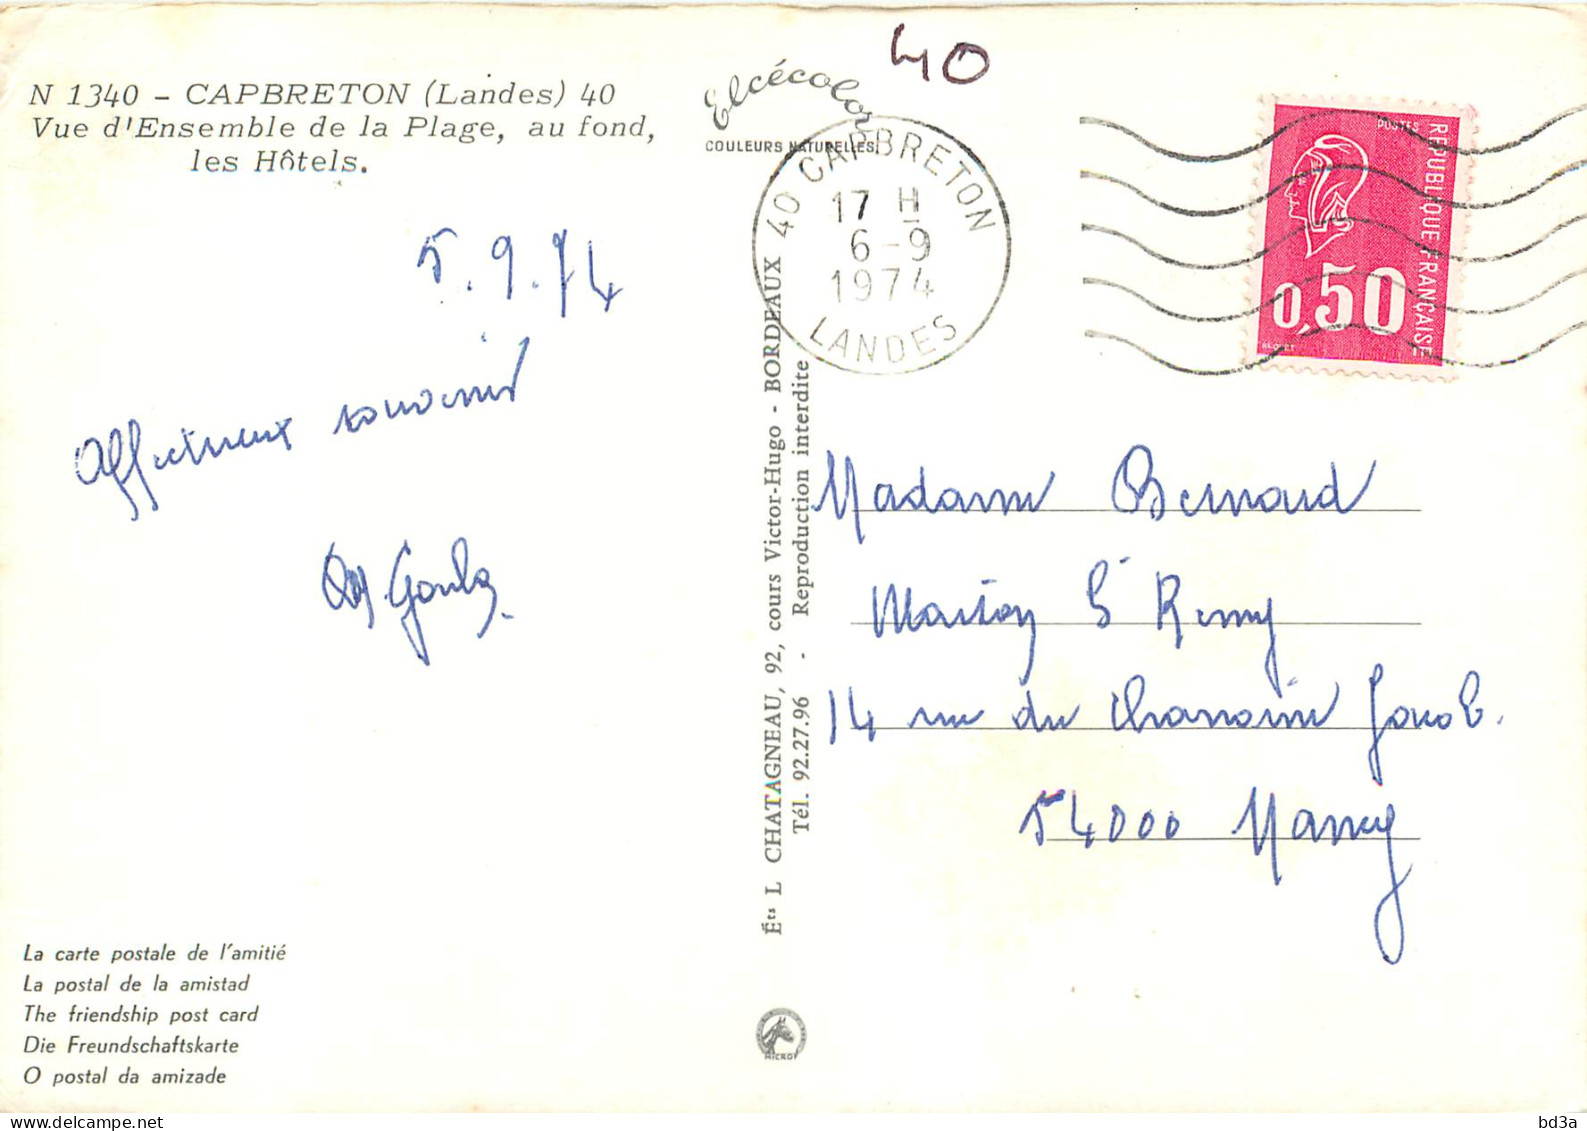 N 1340 - CAPBRETON (Landes) 40
Vue d'Ensemble de la Plage, au fond,
les Hôtels.
40
Elcécolor
COULEURS NATURELLES
40 CAPBRETON
17 H
6-9
1974
LANDES
POSTES
REPUBLIQUE FRANÇAISE
0,50
5.9.74
Affectueux souvenir
Madame Bernard
Maison St Remy
14 rue du Chanoine Jacob.
54000 Nancy
Éts L CHATAGNEAU, 92, cours Victor-Hugo - BORDEAUX
Tél. 92.27.96 - Reproduction interdite
La carte postale de l'amitié
La postal de la amistad
The friendship post card
Die Freundschaftskarte
O postal da amizade
bd3a